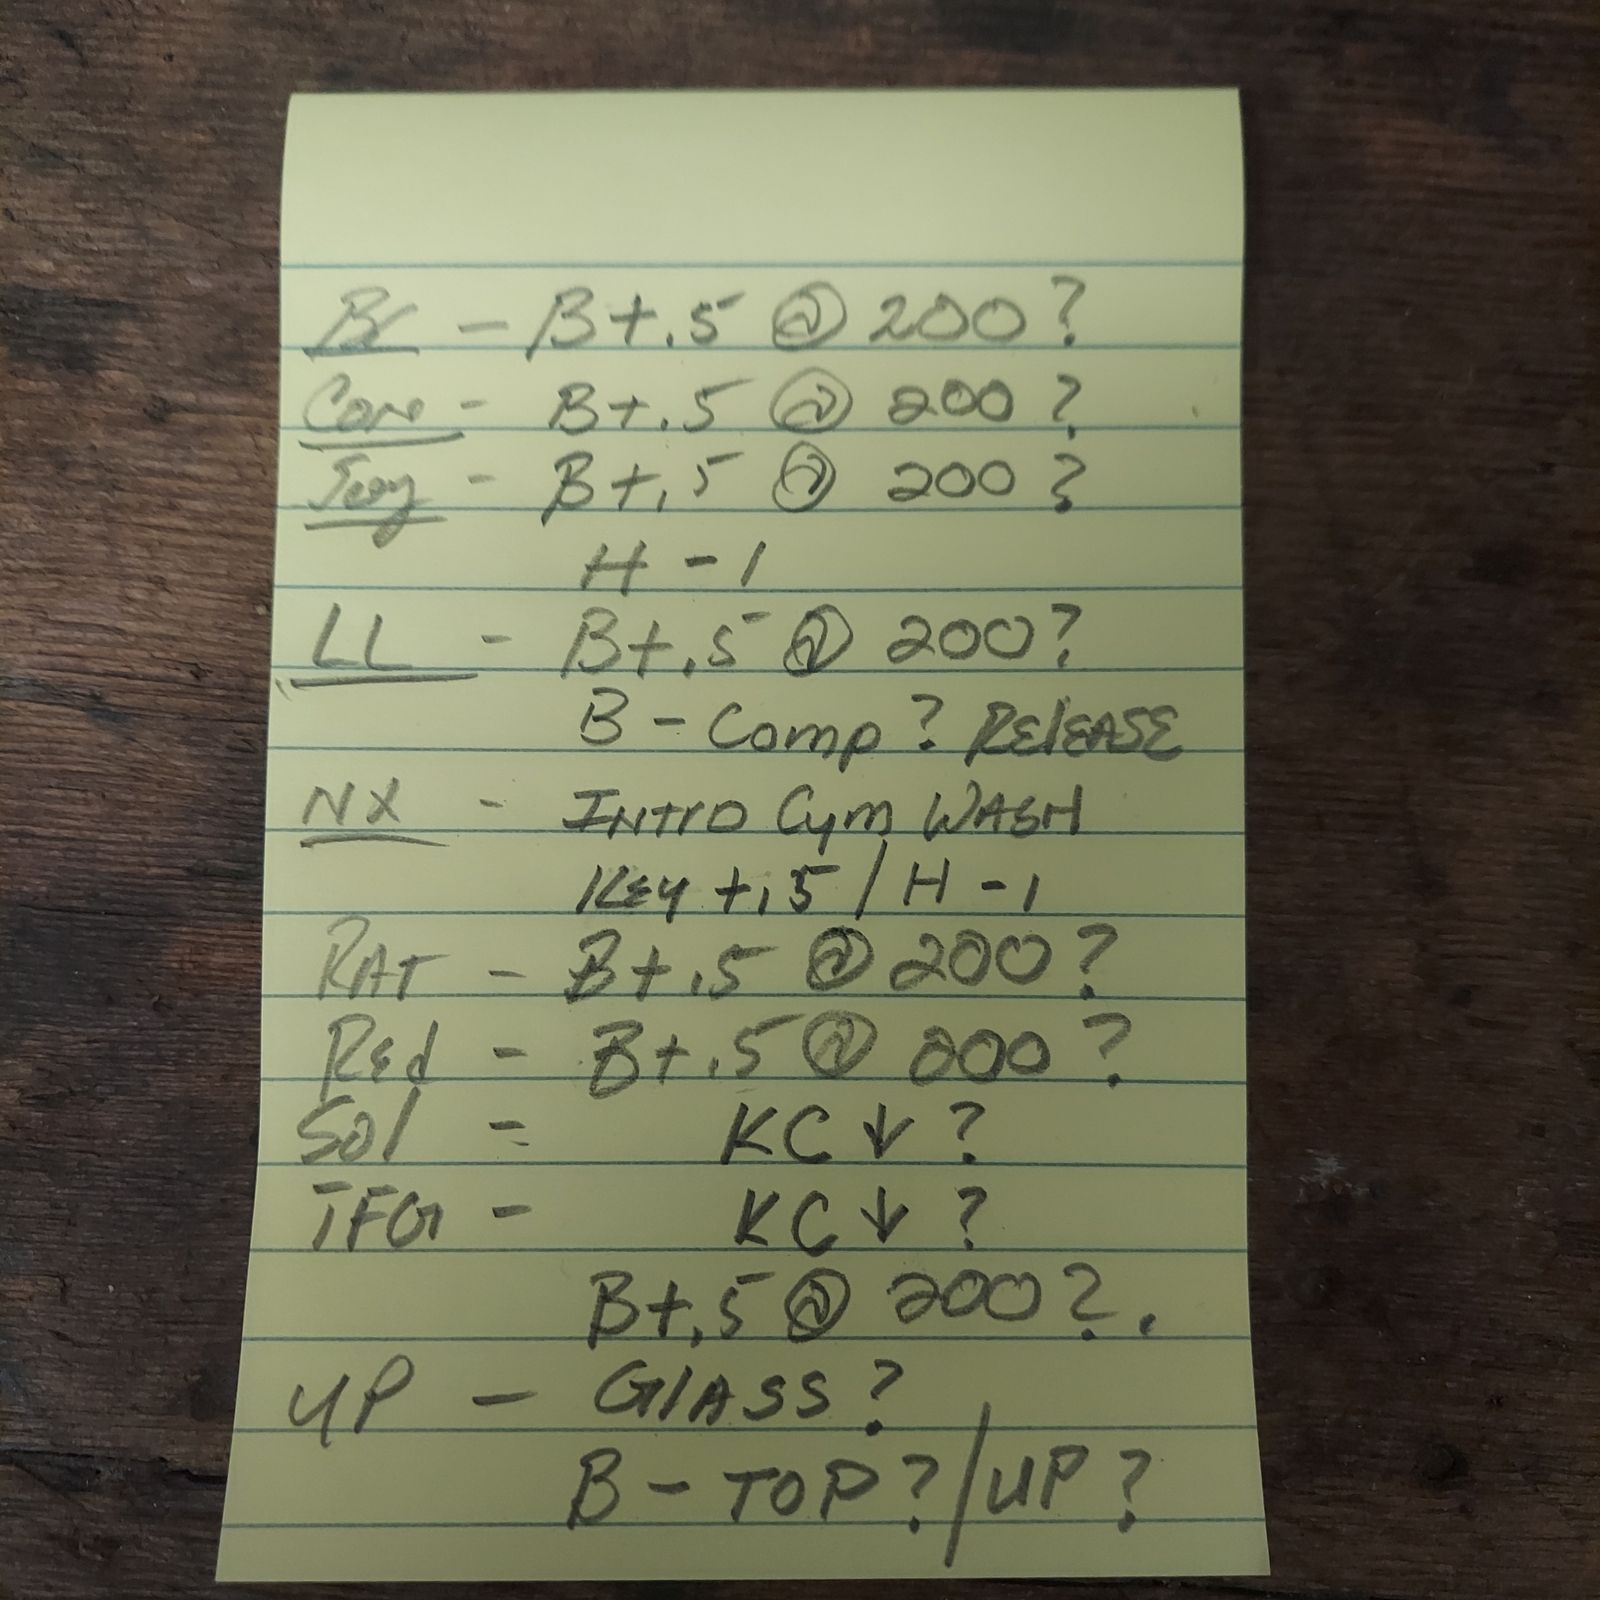 Br - B+.5 @ 200?
Core - B+.5 @ 200?
- B+.5 @ 200?
H -1
LL - B+.5 @ 200?
B - Comp? RElEASE
NX - INTRO Cym WASH
KEy +.5 / H -1
RAT - B+.5 @ 200?
REd - B+.5 @ 200?
Sol - KC↓?
TFG - KC↓?
B+.5 @ 200?.
UP - GlASS?
B - TOP? / UP?